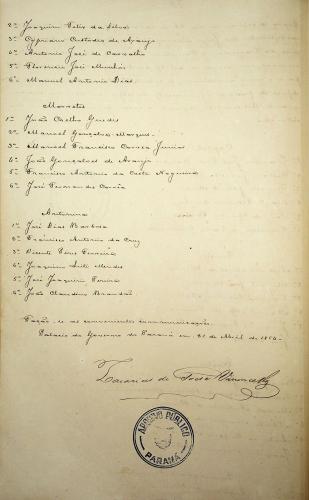 2º Joaquim Felix da Silva
3º Cypriano Custodio de Araujo
4º Antonio José de Carvalho
5º Florencio José Munhós
6º Manuel Antonio Dias.
Morretes
1º João Coelho Guedes
2º Manoel Gonçalves Marques
3º Manoel Francisco Correa Junior
4º João Gonçalves de Araujo
5º Francisco Antonio da Costa Nogueira
6º José Fernandes Corrêa
Antonina
1º José Dias Barbosa
2º Francisco Antonio da Cruz
3º Vicente Ferreira
4º Joaquim Leite Mendes
5º José Joaquim Pereira
6º João Claudino Brandão
Fação-se as convenientes communicações.
Palacio do Governo do Paraná em 21 de Abril de 1854.
Zacarias de Goes e Vasconcellos
ARQUIVO PUBLICO
PARANÁ